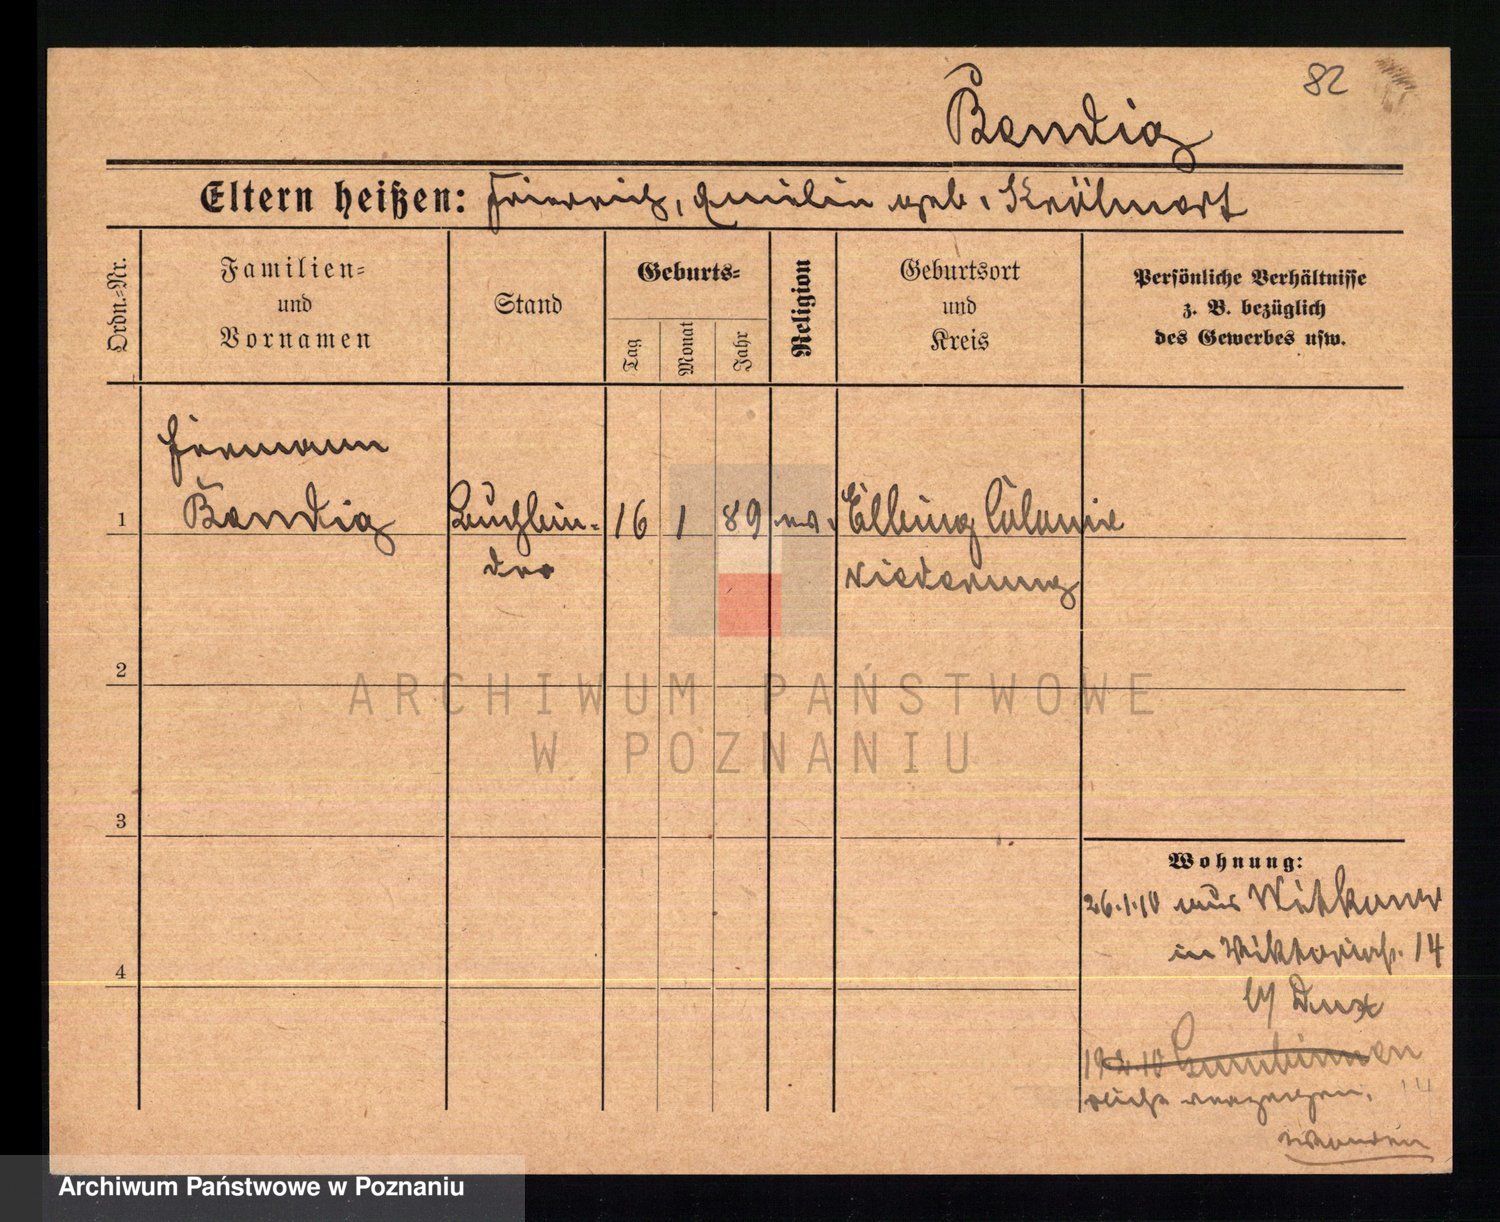 82
Bendig
Eltern heißen: Friedrich, Emilie geb.
Ordn.-Nr.
Familien-
und
Vornamen
Stand
Geburts-
Tag
Monat
Jahr
Religion
Geburtsort
und
Kreis
Persönliche Verhältnisse
z. B. bezüglich
des Gewerbes usw.
Hermann
1 Bendig Buchbin- 16 1 89 ev. Elbing Colonie
der Niederung
2
3
4
Wohnung:
26.1.10 aus Witkowo
in Viktoriastr. 14
b/
Gumbinnen
nicht verzogen. 14
wenden
ARCHIWUM PAŃSTWOWE
W POZNANIU
Archiwum Państwowe w Poznaniu